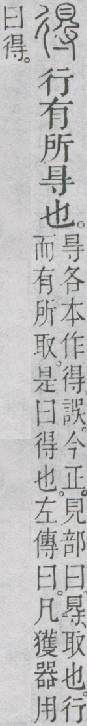 得行有所㝵也。
㝵各本作得。誤。今正。見部曰。䙷取也。行
而有所取。是曰得也。左傳曰。凡獲器用
曰得。